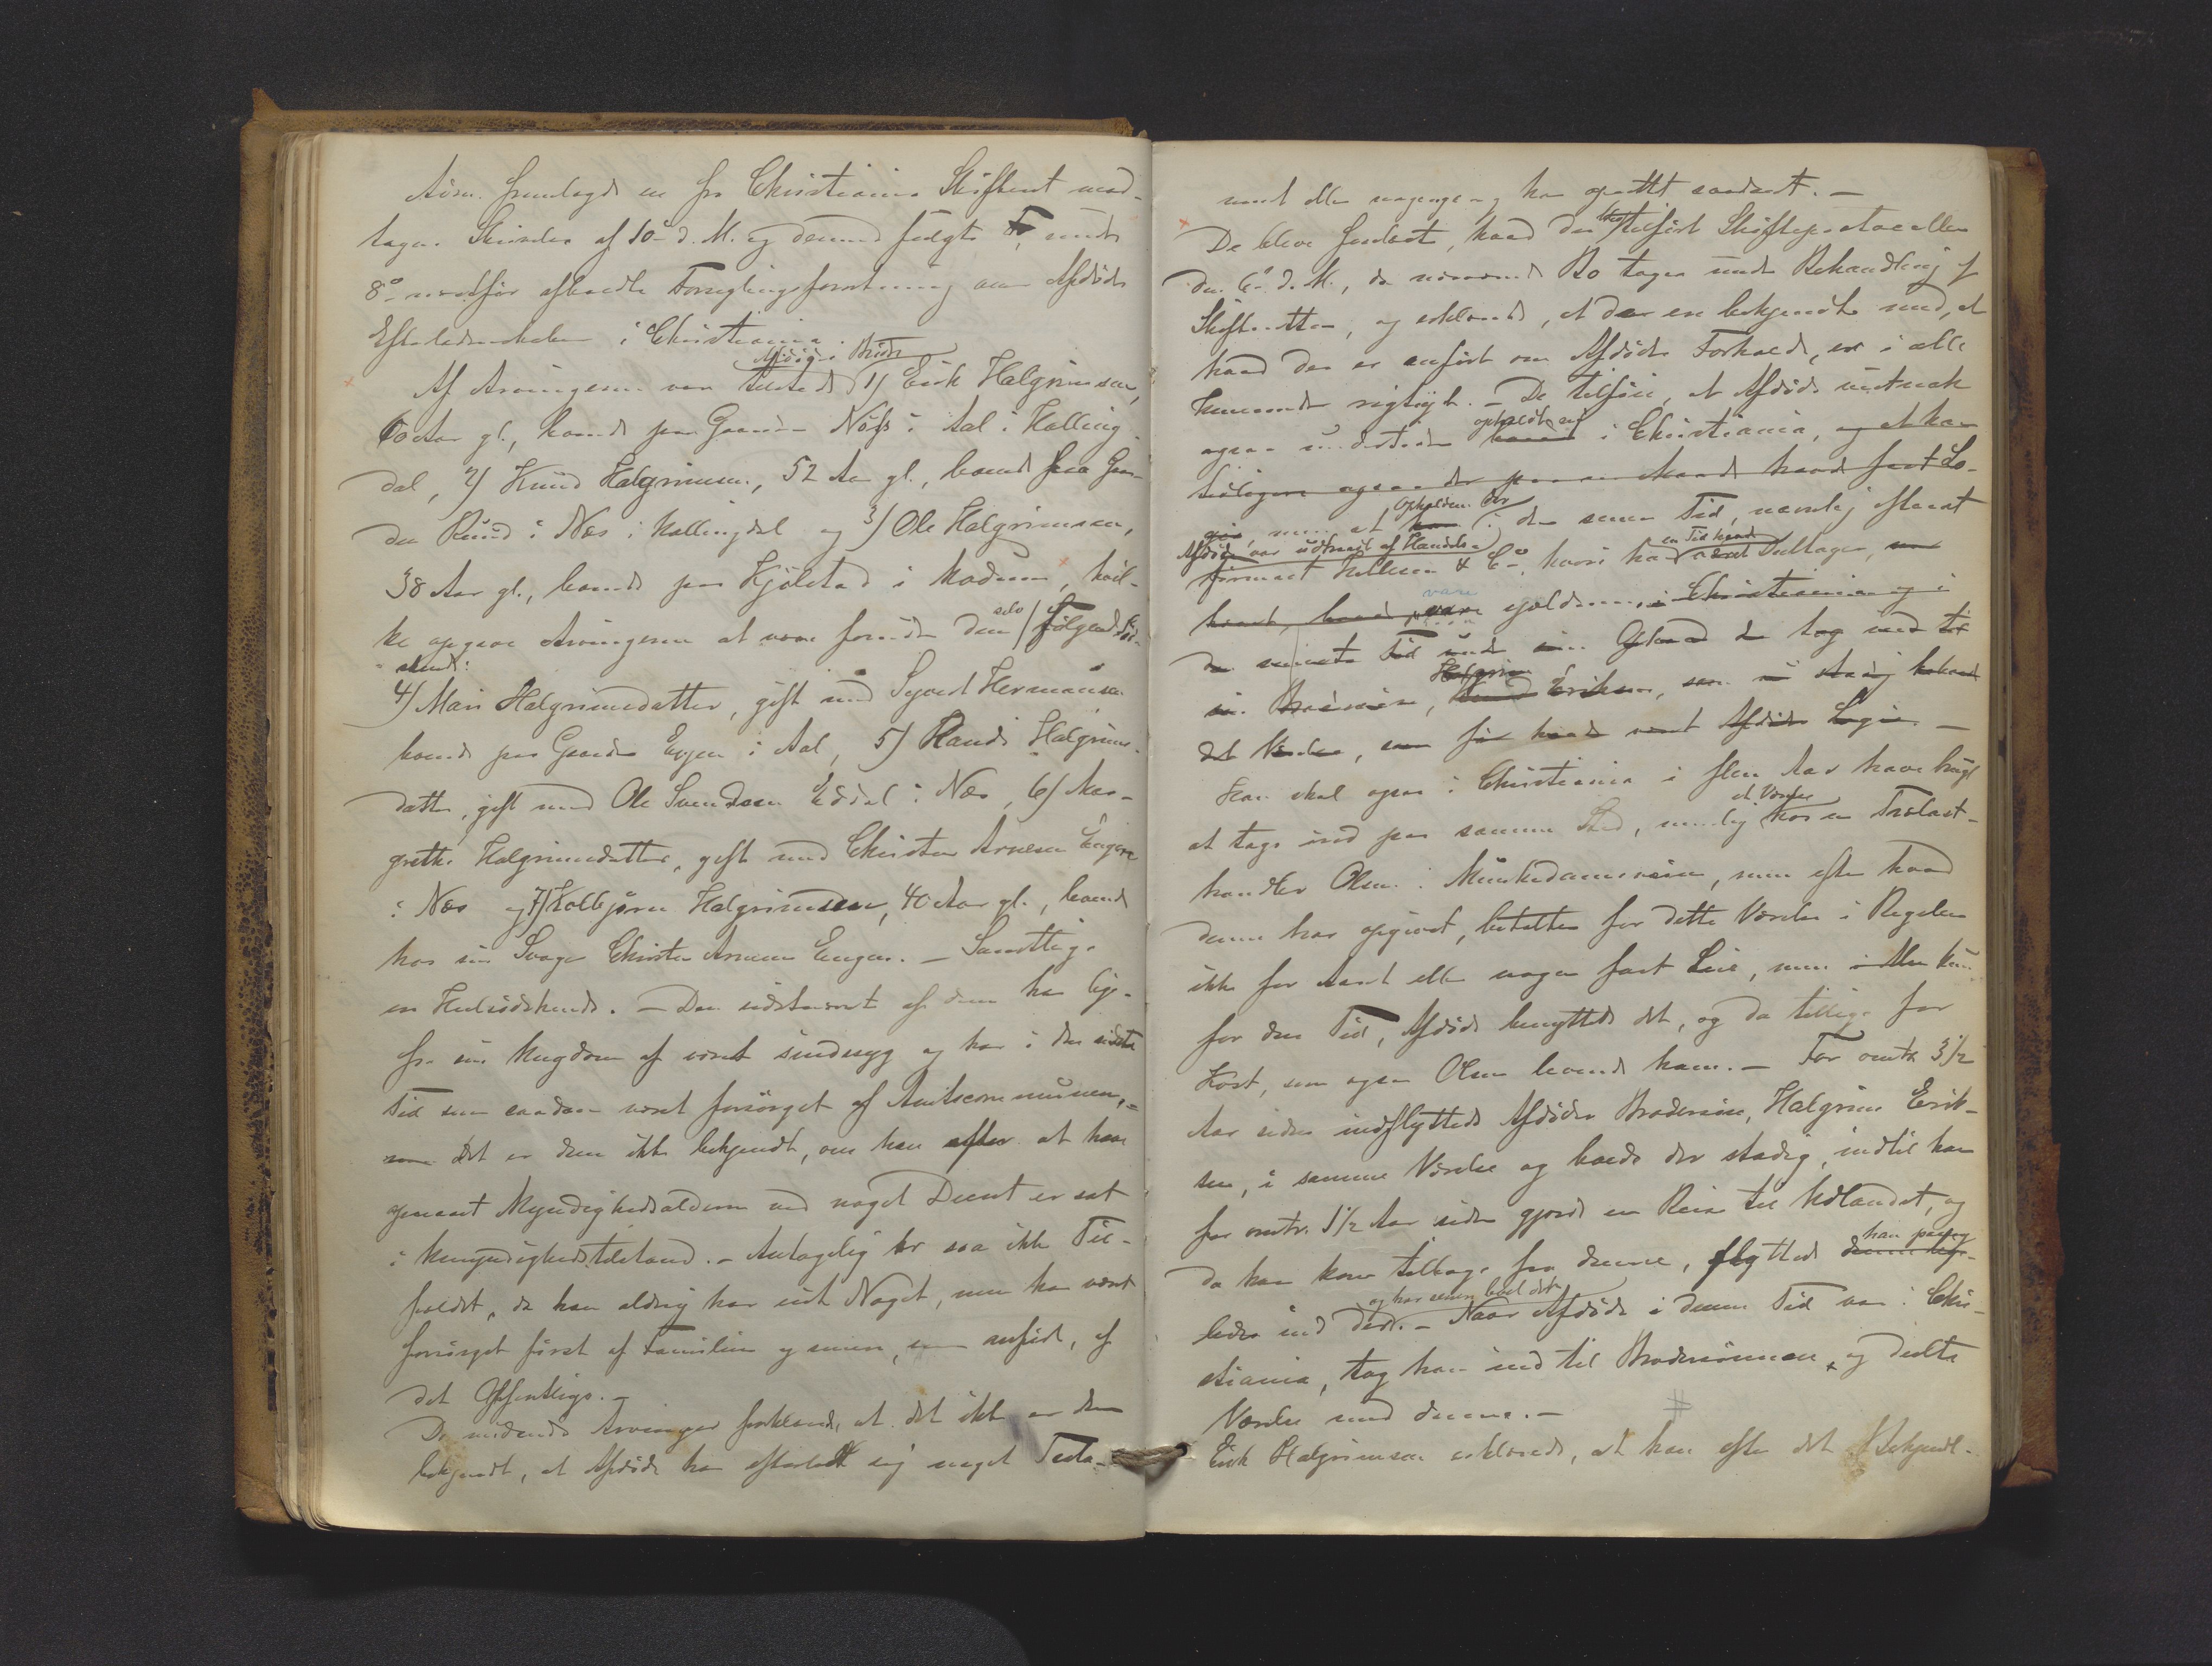 Adm. fremlagde en fra Christiania Skifteret mod-
tagen Skrivelse af 10de d. M. og dermed fulgte under
8de næstfør afholdte Forseglingsforretning over Afdødes
Efterladenskaber i Christiania.
Af Arvingerne var tilstede Afdødes Brødre 1) Erik Halgrimsen,
60 Aar gl., boende paa Gaarden Nøss i Aal i Halling-
dal, 2) Knud Halgrimsen, 52 Aar gl., boende paa Gaar-
den Ruud i Næs i Hallingdal og 3) Ole Halgrimsen,
38 Aar gl., boende paa Kjølstad i Modum, hvil-
ke opgave Arvingerne at være foruden dem selv følgende Sød-
skende:
4) Mari Halgrimsdatter, gift med Syvert Hermansen
boende paa Gaarden Evjen i Aal, 5) Randi Halgrims-
datter, gift med Ole Svendsen Eidal i Næs, 6) Mar-
grethe Halgrimsdatter, gift med Christen Arnesen Engene
i Næs og 7) Kolbjørn Halgrimsen, 40 Aar gl., boende
hos sin Svoger Christen Arnesen Engen. – Samtlige
ere Helsødskende. – Den sidstnævnte af dem har lige
fra sin Ungdom af været sindssyg og har i den sidste
Tid som saadan været forsørget af Amtscommunen, –
det er dem ikke bekjendt, om han efter at have
opnaaet Myndighedsalderen ved noget Decret er sat
i Umyndighedstilstand. – Antagelig er saa ikke Til-
fældet, da han aldrig har eiet Noget, men har været
forsørget først af Familien og senere, som anført, af
det Offentlige. –
De mødende Arvinger forklarede, at det ikke er dem
bekjendt, at Afdøde har efterladt sig noget Testa-
ment eller nogensinde har oprettet saadant. –
De bleve forelæst, hvad der er tilført Skifteprotocollen
den 6te d. M., da nærværende Bo toges under Behandling af
Skifteretten, og erklærede, at de ere bekjendte med, at
hvad der er anført om Afdødes Forhold, er i alle
Henseender rigtigt. – De tilføie, at Afdøde
ogsaa undertiden opholdt sig i Christiania, og at han
tidligere ogsaa der paa en Maade havde fast Lo-
gis, men at Opholdene der i den senere Tid, nemlig efterat
Afdøde var udtraadt af Handels-
firmaet & Co, hvori han en Tid havde været Deltager,
vare sjeldnere i Christiania og i
den seneste Tid under sine Ophold der tog ind til
sin Brodersøn, Halgrim Eriksen, som nu stadig beboede
det Værelse, som før havde været Afdødes Logis. –
Han skal ogsaa i Christiania i flere Aar have brugt
at tage ind paa samme Sted, nemlig et Værelse hos en Trælast-
handler Olsen i Munkedamsveien, men efter hvad
denne har opgivet, betaltes for dette Værelse i Regelen
ikke for Aaret eller nogen fast Leie, men kun
for den Tid, Afdøde benyttede det, og da tillige for
Kost, som ogsaa Olsen leverede ham. – For omtr. 3 1/2
Aar siden indflyttede Afdødes Brodersøn, Halgrim Erik-
sen, i samme Værelse og boede der stadig, indtil han
for omtr. 1 1/2 Aar siden gjorde en Reise til Udlandet, og
da han kom tilbage fra denne, flyttede han paany
ind der og har senere boet der. – Naar Afdøde i denne Tid var i Chri-
stiania, tog han ind til Brodersønnen, og deelte
Værelse med denne. –
Erik Halgrimsen erklærede, at han efter det Bekjendt-